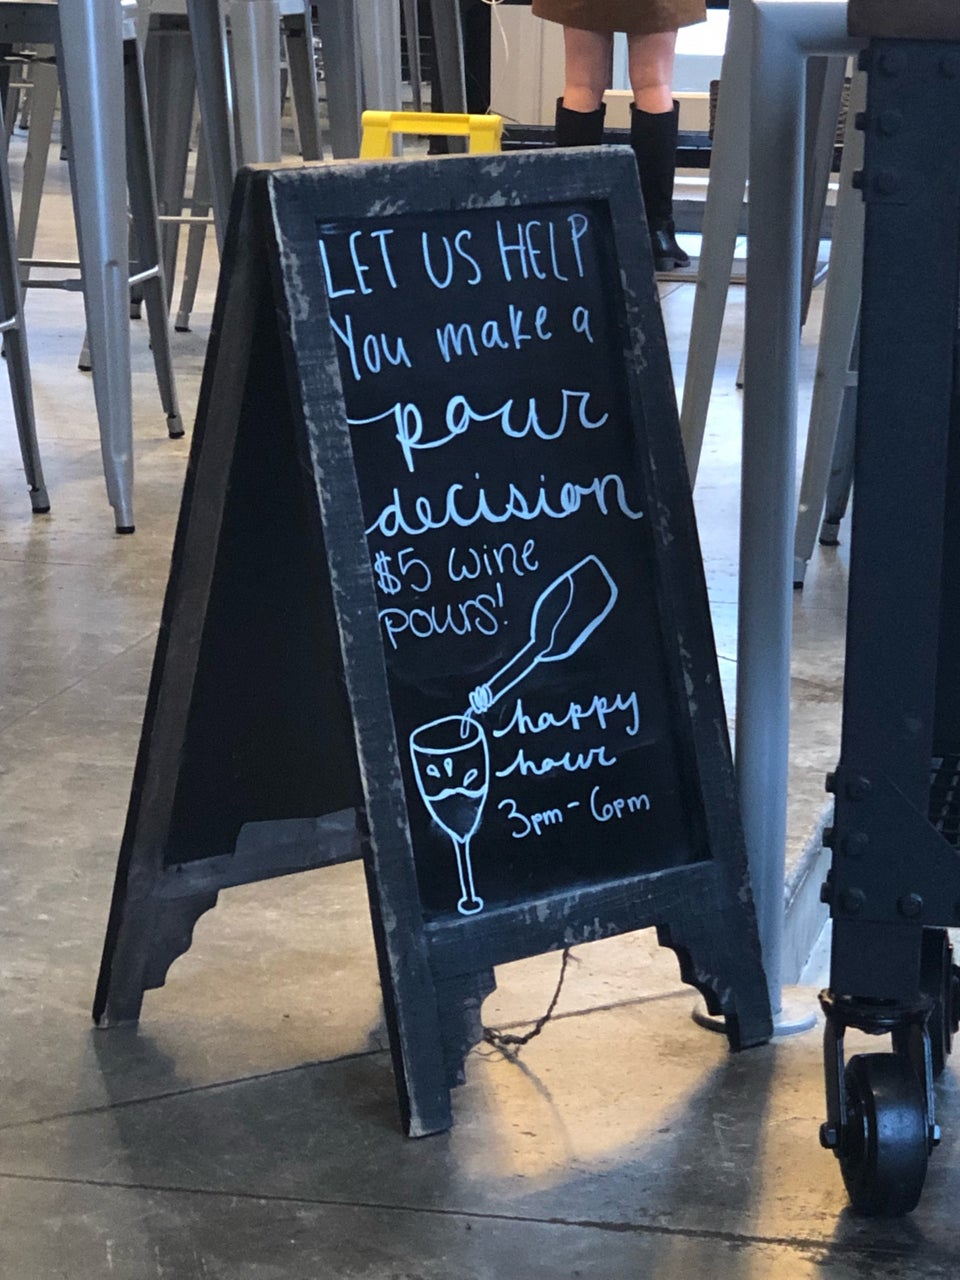 LET US HELP
You make a
pour
decision
$5 wine
pours!
happy
hour
3pm - 6pm